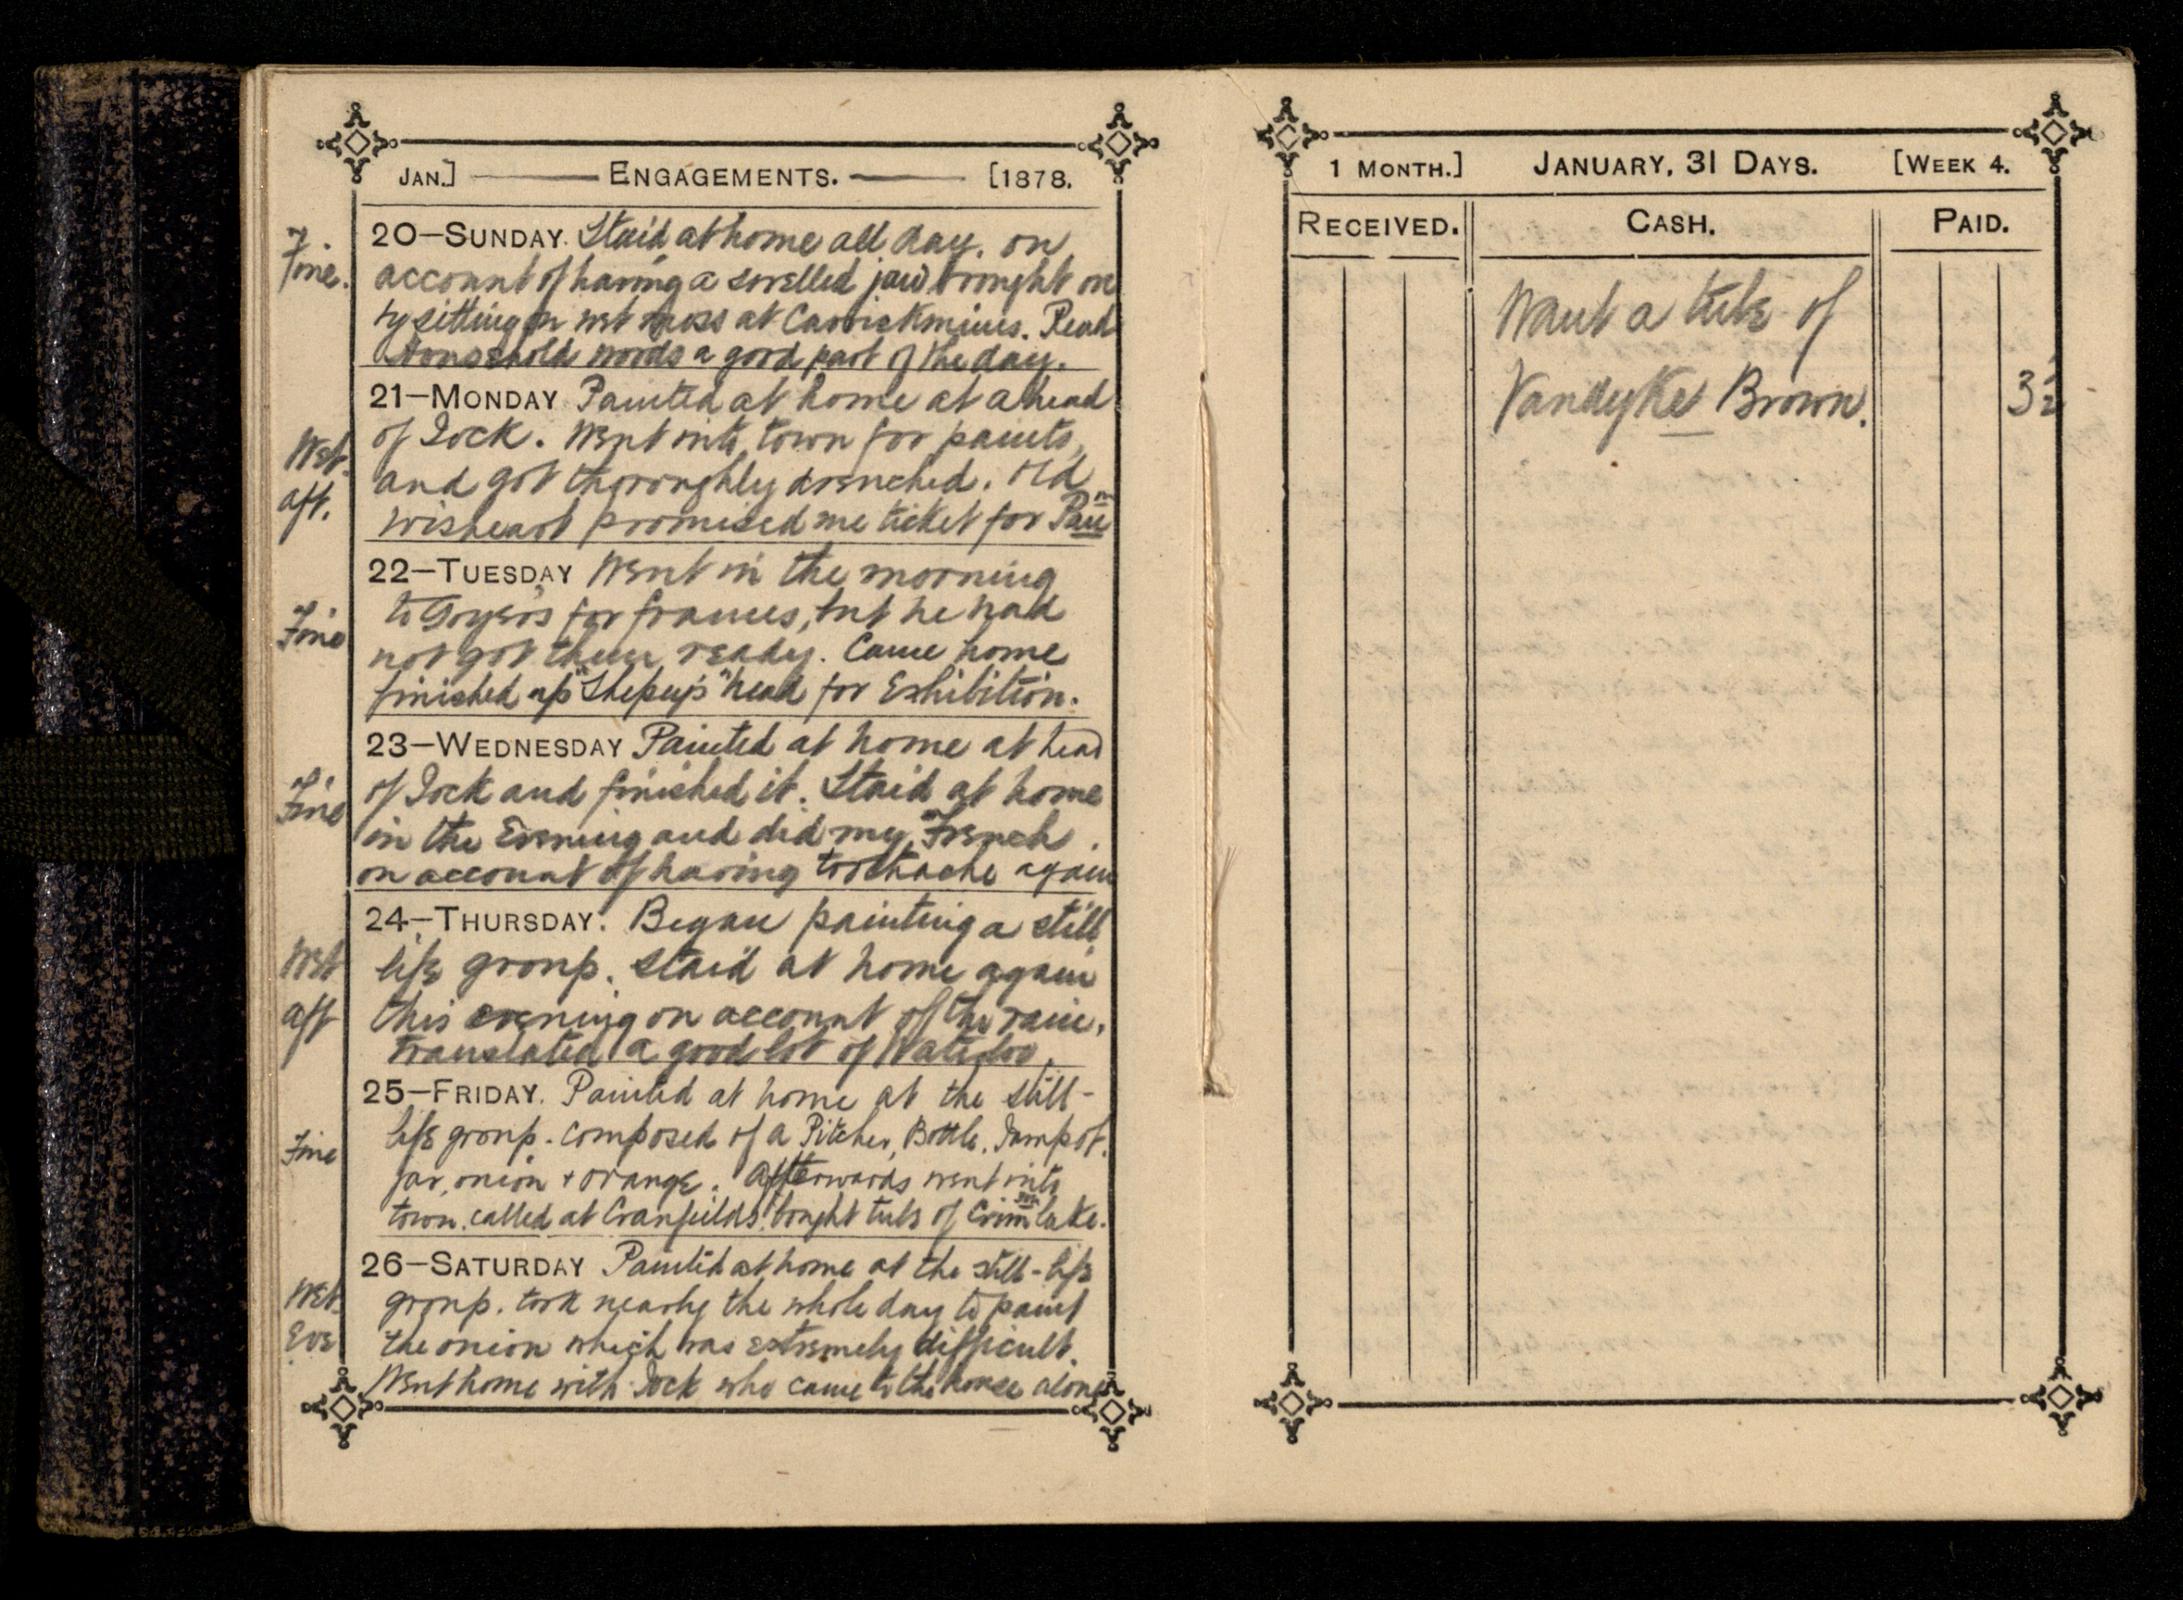 JAN.] ENGAGEMENTS. [1878.
Fine.
20—SUNDAY. Staid at home all day. on
account of having a swelled jaw brought on
by sitting on wet moss at Carrickmines. Read
Household words a good part of the day.
Wet.
aft.
21—MONDAY Painted at home at a head
of Jock. Went into town for paints,
and got thoroughly drenched. Old
Wisheart promised me ticket for
Fine
22—TUESDAY Went in the morning
to for frames, but he had
not got them ready. Came home
finished up " " head for Exhibition.
Fine
23—WEDNESDAY Painted at home at head
of Jock and finished it. Staid at home
in the Evening and did my French.
on account of having toothache again
Wet
aft
24—THURSDAY. Began painting a still
life group. Staid at home again
this evening on account of the rain.
translated a good lot of Waterloo.
Fine
25—FRIDAY. Painted at home at the still-
life group. composed of a Pitcher, Bottle, Jampot.
jar, onion + orange. Afterwards went into
town. called at Cranfields. bought tube of Crimson lake.
Wet.
Eve
26—SATURDAY Painted at home at the still-life
group. took nearly the whole day to paint
the onion which was extremely difficult.
Went home with Jock who came to the house alone
1 MONTH.] JANUARY, 31 DAYS. [WEEK 4.
RECEIVED. CASH. PAID.
Want a tube of
Vandyke Brown. 3½